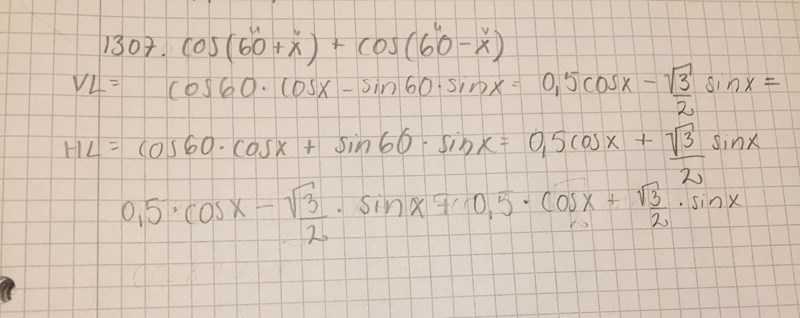 1307. cos(60+x) + cos(60-x)
VL = cos60·cosx - sin60·sinx = 0,5cosx - √3/2 sinx =
HL = cos60·cosx + sin60·sinx = 0,5cosx + √3/2 sinx
0,5·cosx - √3/2 · sinx + 0,5·cosx + √3/2 · sinx